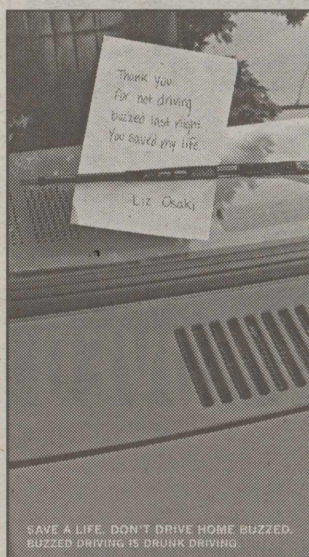 Thank you
for not driving
buzzed last night.
You saved my life.
-Liz Osaki
SAVE A LIFE. DON'T DRIVE HOME BUZZED.
BUZZED DRIVING IS DRUNK DRIVING.